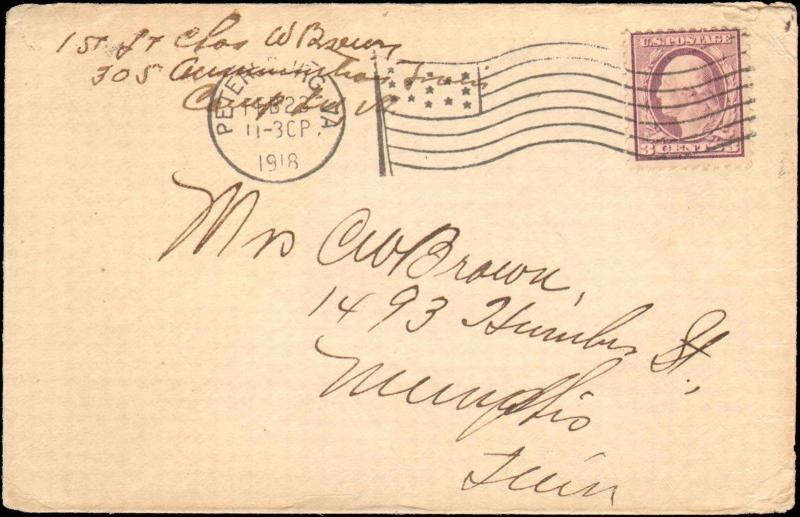 1st Lt Chas W Brown
305 Ammunition Train
Camp Lee Va
PETERSBURG, VA
FEB 23
11-30P.
1918
U.S. POSTAGE
3 CENTS 3
Mrs C W Brown,
1493 Humber St.,
Memphis
Tenn